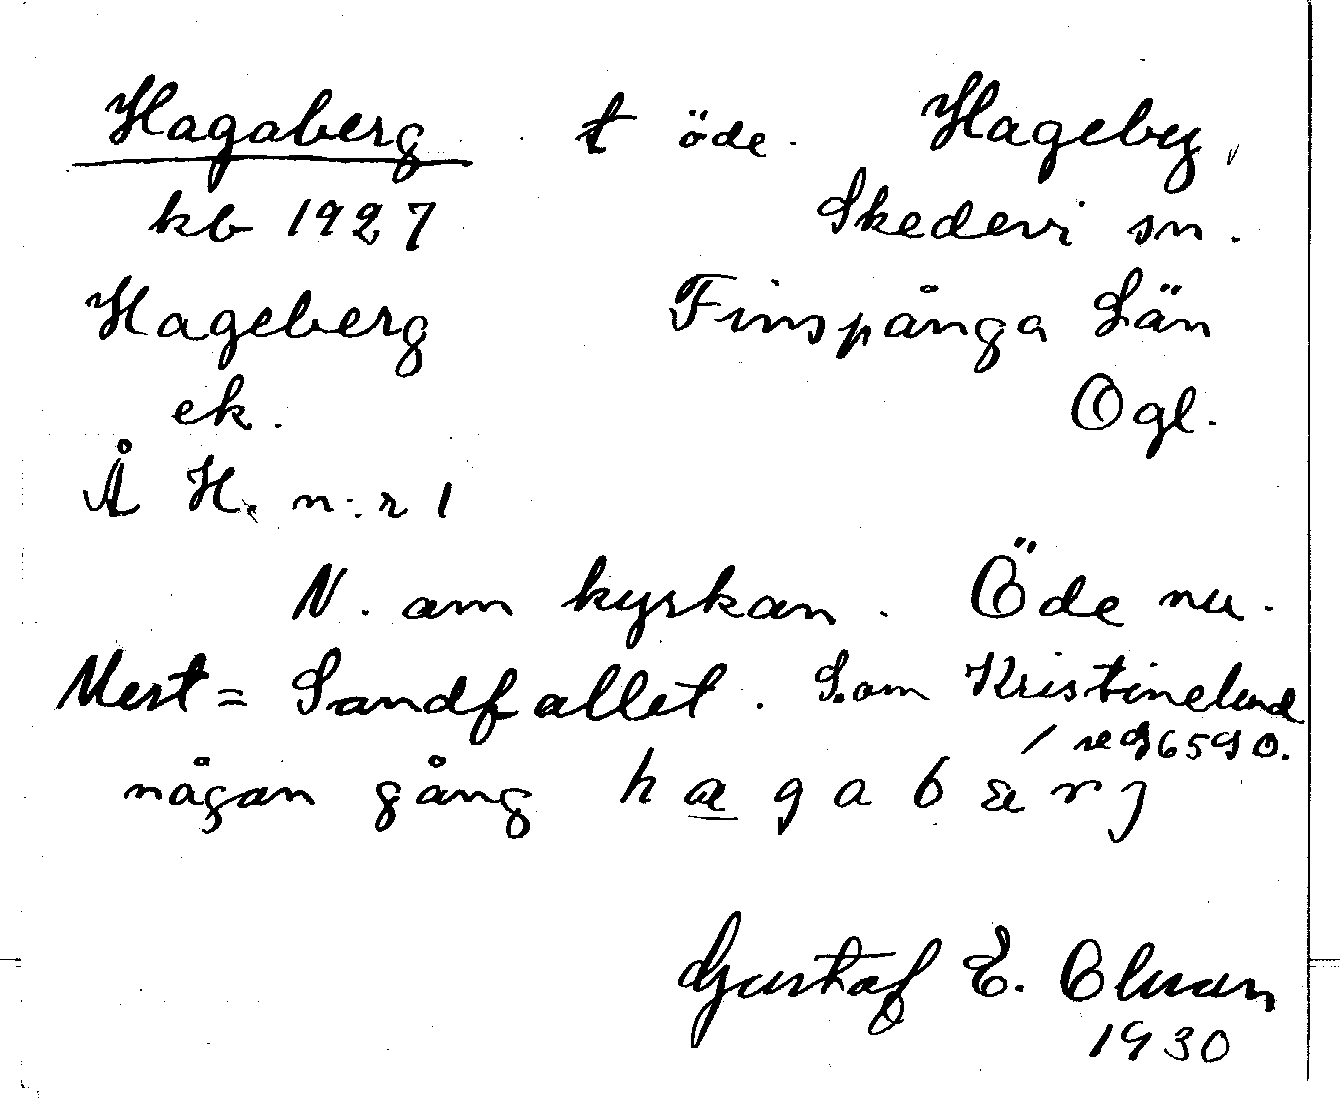 Hagaberg t öde. Hageby,
kb 1927 Skedevi sn.
Hageberg Finspånga Län
ek. Ogl.
Å H. n:r 1
N. om kyrkan. Öde nu.
Mest = Sandfallet. Som Kristinelund
någon gång hagabærj
Gustaf E. Olsson
1930